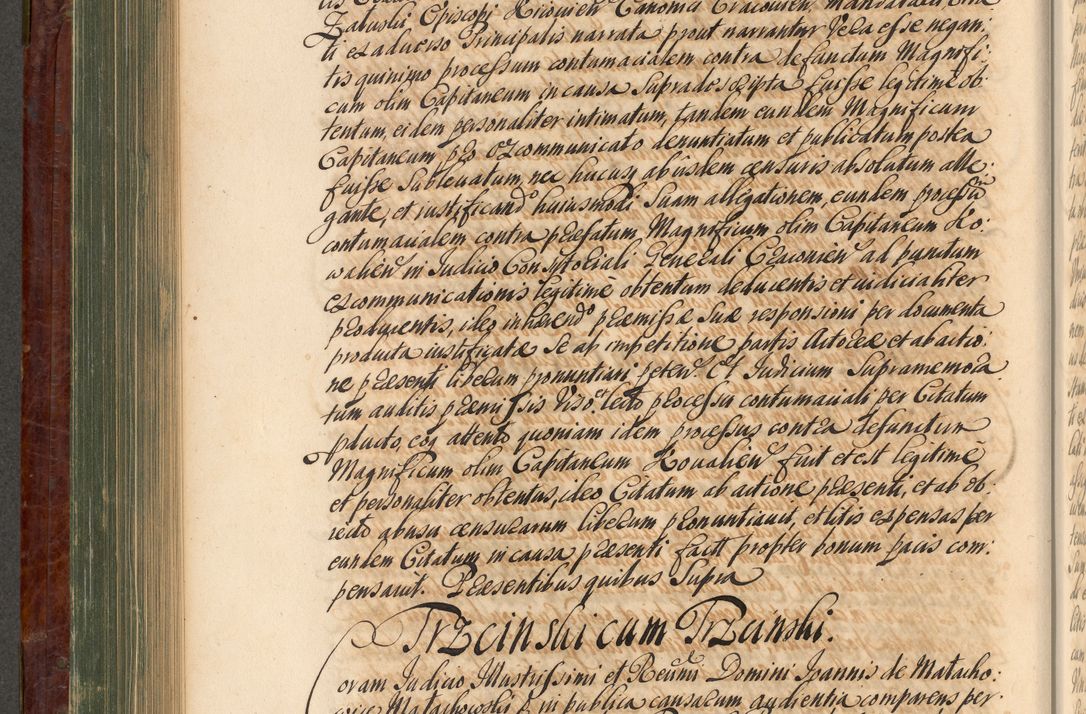 Zaluski Episcopi Kiiovien Canonici Cracovien, mandatarii
ti ex aducrso Principalis narrata prout narrantur Vera esse negan:
tis quinimo processum contumacialem contra defunctum Magnifi:
cum olim Capitaneum in causa Supradescripta fuisse legitime ob:
tentum, eidem personaliter intimatum, tandem eundem Magnificum
Capitaneum pro excommunicato denuntiatum et publicatum postea
fuisse Sublevatum, nec hucusq ab iisdem censuris absolutum alle:
gante, et iustificando huiusmodi Suam allegationem, eundem processũ
contumacialem contra præfatum Magnificum olim Capitaneum Ko:
walien in Iudicio Consistoriali Generali Cracovien ad panctum
excommunicationis legitimè obtentum deducentis et iudicialiter
producentis, ideo inhærendo præmissæ Suæ responsioni per documenta
producta iustificatæ Se ab impetitione partis Actoreæ et ab actio:
ne præsenti liberum pronuntiari peten. Et Iudicium Supramemora:
tum auditis præmissis Viso et lecto processu contumaciali per Citatum
pducto, eoq attento quoniam idem processus contra defunctum
Magnificum olim Capitaneum Kovalien fuit et est legitimè
et personaliter obtentus, ideo Citatum ab actione præsenti, et ab ob:
iecto abusu censurarum liberum pronuntiavit, et litis expensas per
eundem Citatum in causa præsenti facti propter bonum pacis com:
pensavit. Præsentibus quibus Supra
Trzcinski cum Trzcinski.
oram Iudicio Illustrissimi et Reverendissimi Domini Ioannis de Malacho:
wice Malachowski in publica causarum audientia comparens per